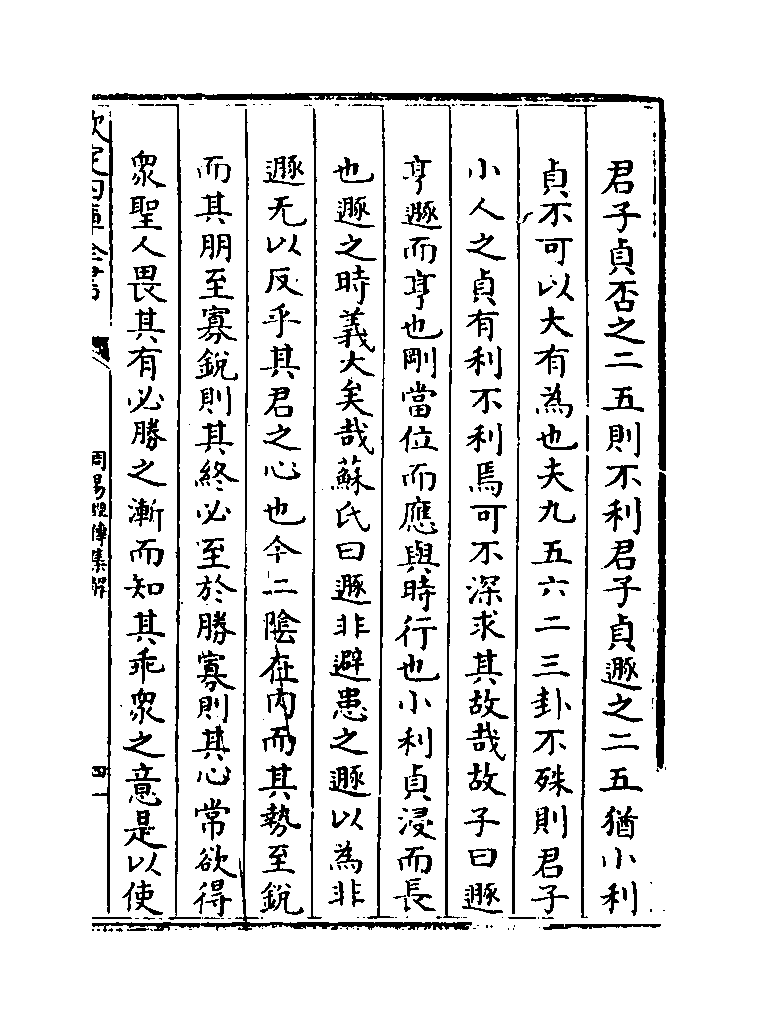 君子貞否之二五則不利君子貞遯之二五猶小利
貞不可以大有為也夫九五六二三卦不殊則君子
小人之貞有利不利焉可不深求其故哉故子曰遯
亨遯而亨也剛當位而應與時行也小利貞浸而長
也遯之時義大矣哉蘇氏曰遯非避患之遯以為非
遯无以反乎其君之心也今二陰在内而其勢至銳
而其朋至寡銳則其終必至於勝寡則其心常欲得
衆聖人畏其有必勝之漸而知其乖衆之意是以使
欽定四庫全書
周易經傳集解
四一